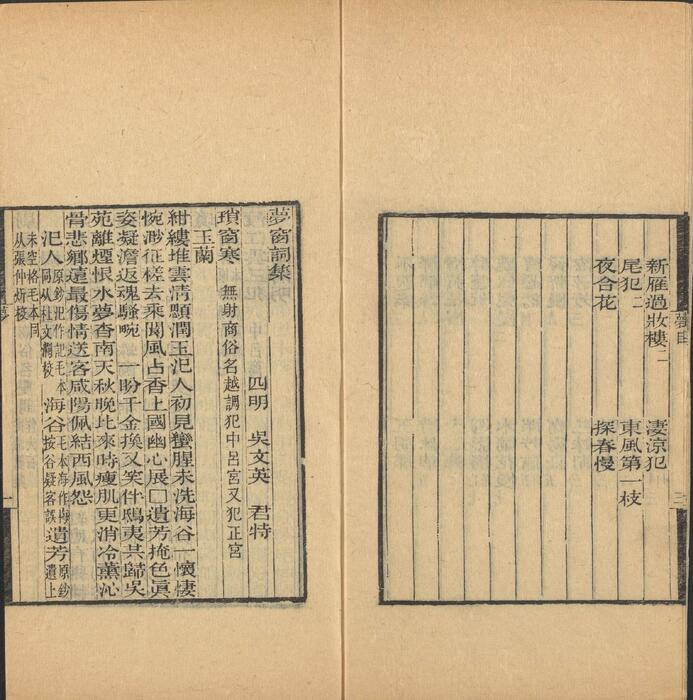 新雁過妝樓二　淒涼犯
尾犯二　東風第一枝
夜合花　探春慢
夢目　三
夢窗詞集
四明　吳文英　君特
瑣窗寒　無射商俗名越調犯中呂宮又犯正宮
玉蘭
紺縷堆雲清顋潤玉汜人初見蠻腥未洗海谷一懷悽
惋渺征槎去乘閬風占香上國幽心展□遺芳掩色眞
姿凝澹返魂騷畹　一盼千金換又笑伴鴟夷共歸吳
苑離煙恨水夢杳南天秋晚比來時瘦肌更消冷薰沁
骨悲鄉遠最傷情送客咸陽佩結西風怨
汜人原鈔汜作記毛本同從杜文瀾校　海谷毛本海作梅按谷疑客誤　遺芳原鈔遺上
未空格毛本同從張仲炘校
夢　一